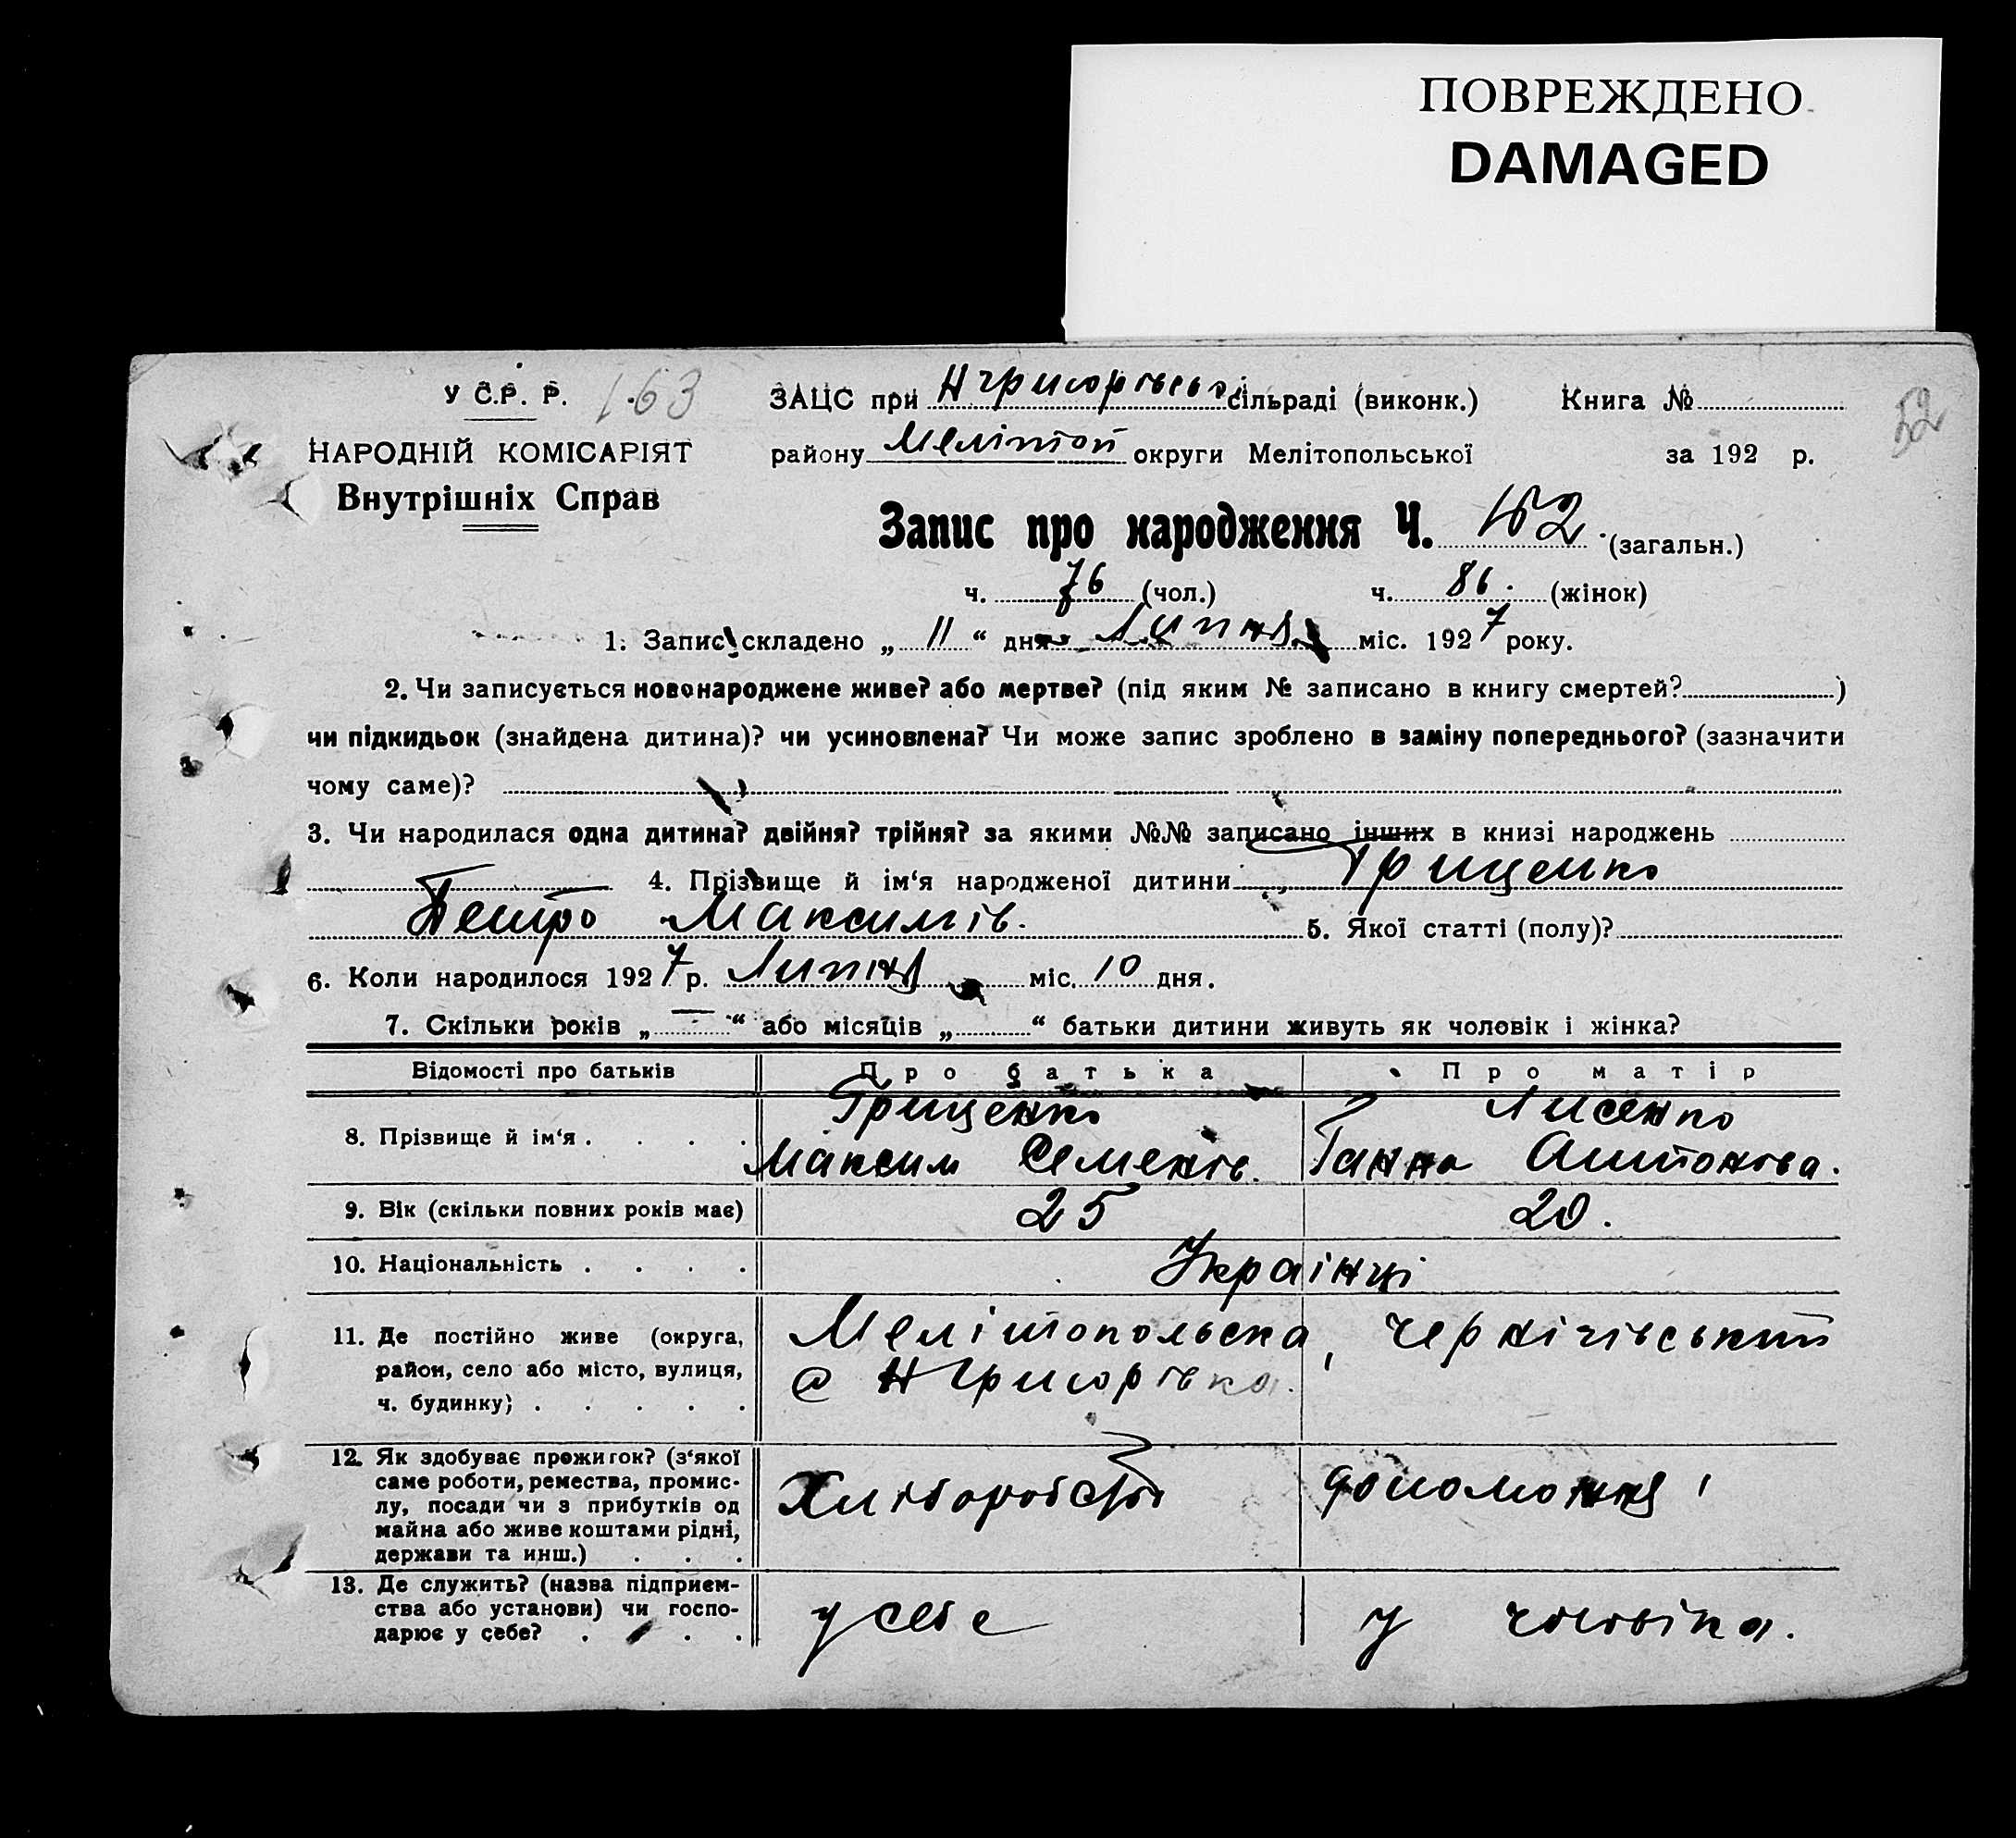 ПОВРЕЖДЕНО
DAMAGED
У С.Р. Р. 163
ЗАЦС при Н Григорівські сільраді (виконк.) Книга № 52
НАРОДНІЙ КОМІСАРІЯТ
району Меліпоп округи Мелітопольської за 192 р.
Внутрішніх Справ
Запис про народження Ч. 162 (загальн.)
ч. 76 (чол.) ч. 86. (жінок)
1. Запис складено „ 11 “ дня Липня міс. 1927 року.
2. Чи записується новонароджене живе? або мертве? (під яким № записано в книгу смертей? )
чи підкидьок (знайдена дитина)? чи усиновлена? Чи може запис зроблено в заміну попереднього? (зазначити
чому саме)?
3. Чи народилася одна дитина? двійня? трійня? за якими №№ записано інших в книзі народжень
4. Прізвище й ім‘я народженої дитини Грищенко
Петро Максимів. 5. Якої статті (полу)?
6. Коли народилося 1927 р. Липня міс. 10 дня.
7. Скільки років „ — “ або місяців „ “ батьки дитини живуть як чоловік і жінка?
Відомості про батьків Про батька Про матір
8. Прізвище й ім‘я . . . . Грищенко Максим Семенів. Лисенко Ганна Антонова.
9. Вік (скільки повних років має) 25 20.
10. Національність . . . . Українці
11. Де постійно живе (округа, Мелітопольска, Чернігівський
район, село або місто, вулиця, с Н Григорівка.
ч. будинку) . . . . .
12. Як здобуває прожиток? (з‘якої
саме роботи, ремества, промис-
лу, посади чи з прибутків од Хліборобство допоможня
майна або живе коштами рідні,
держави та инш.) . . .
13. Де служить? (назва підприєм-
ства або установи) чи госпо- у себе у чоловіка.
дарює у себе? . . . .